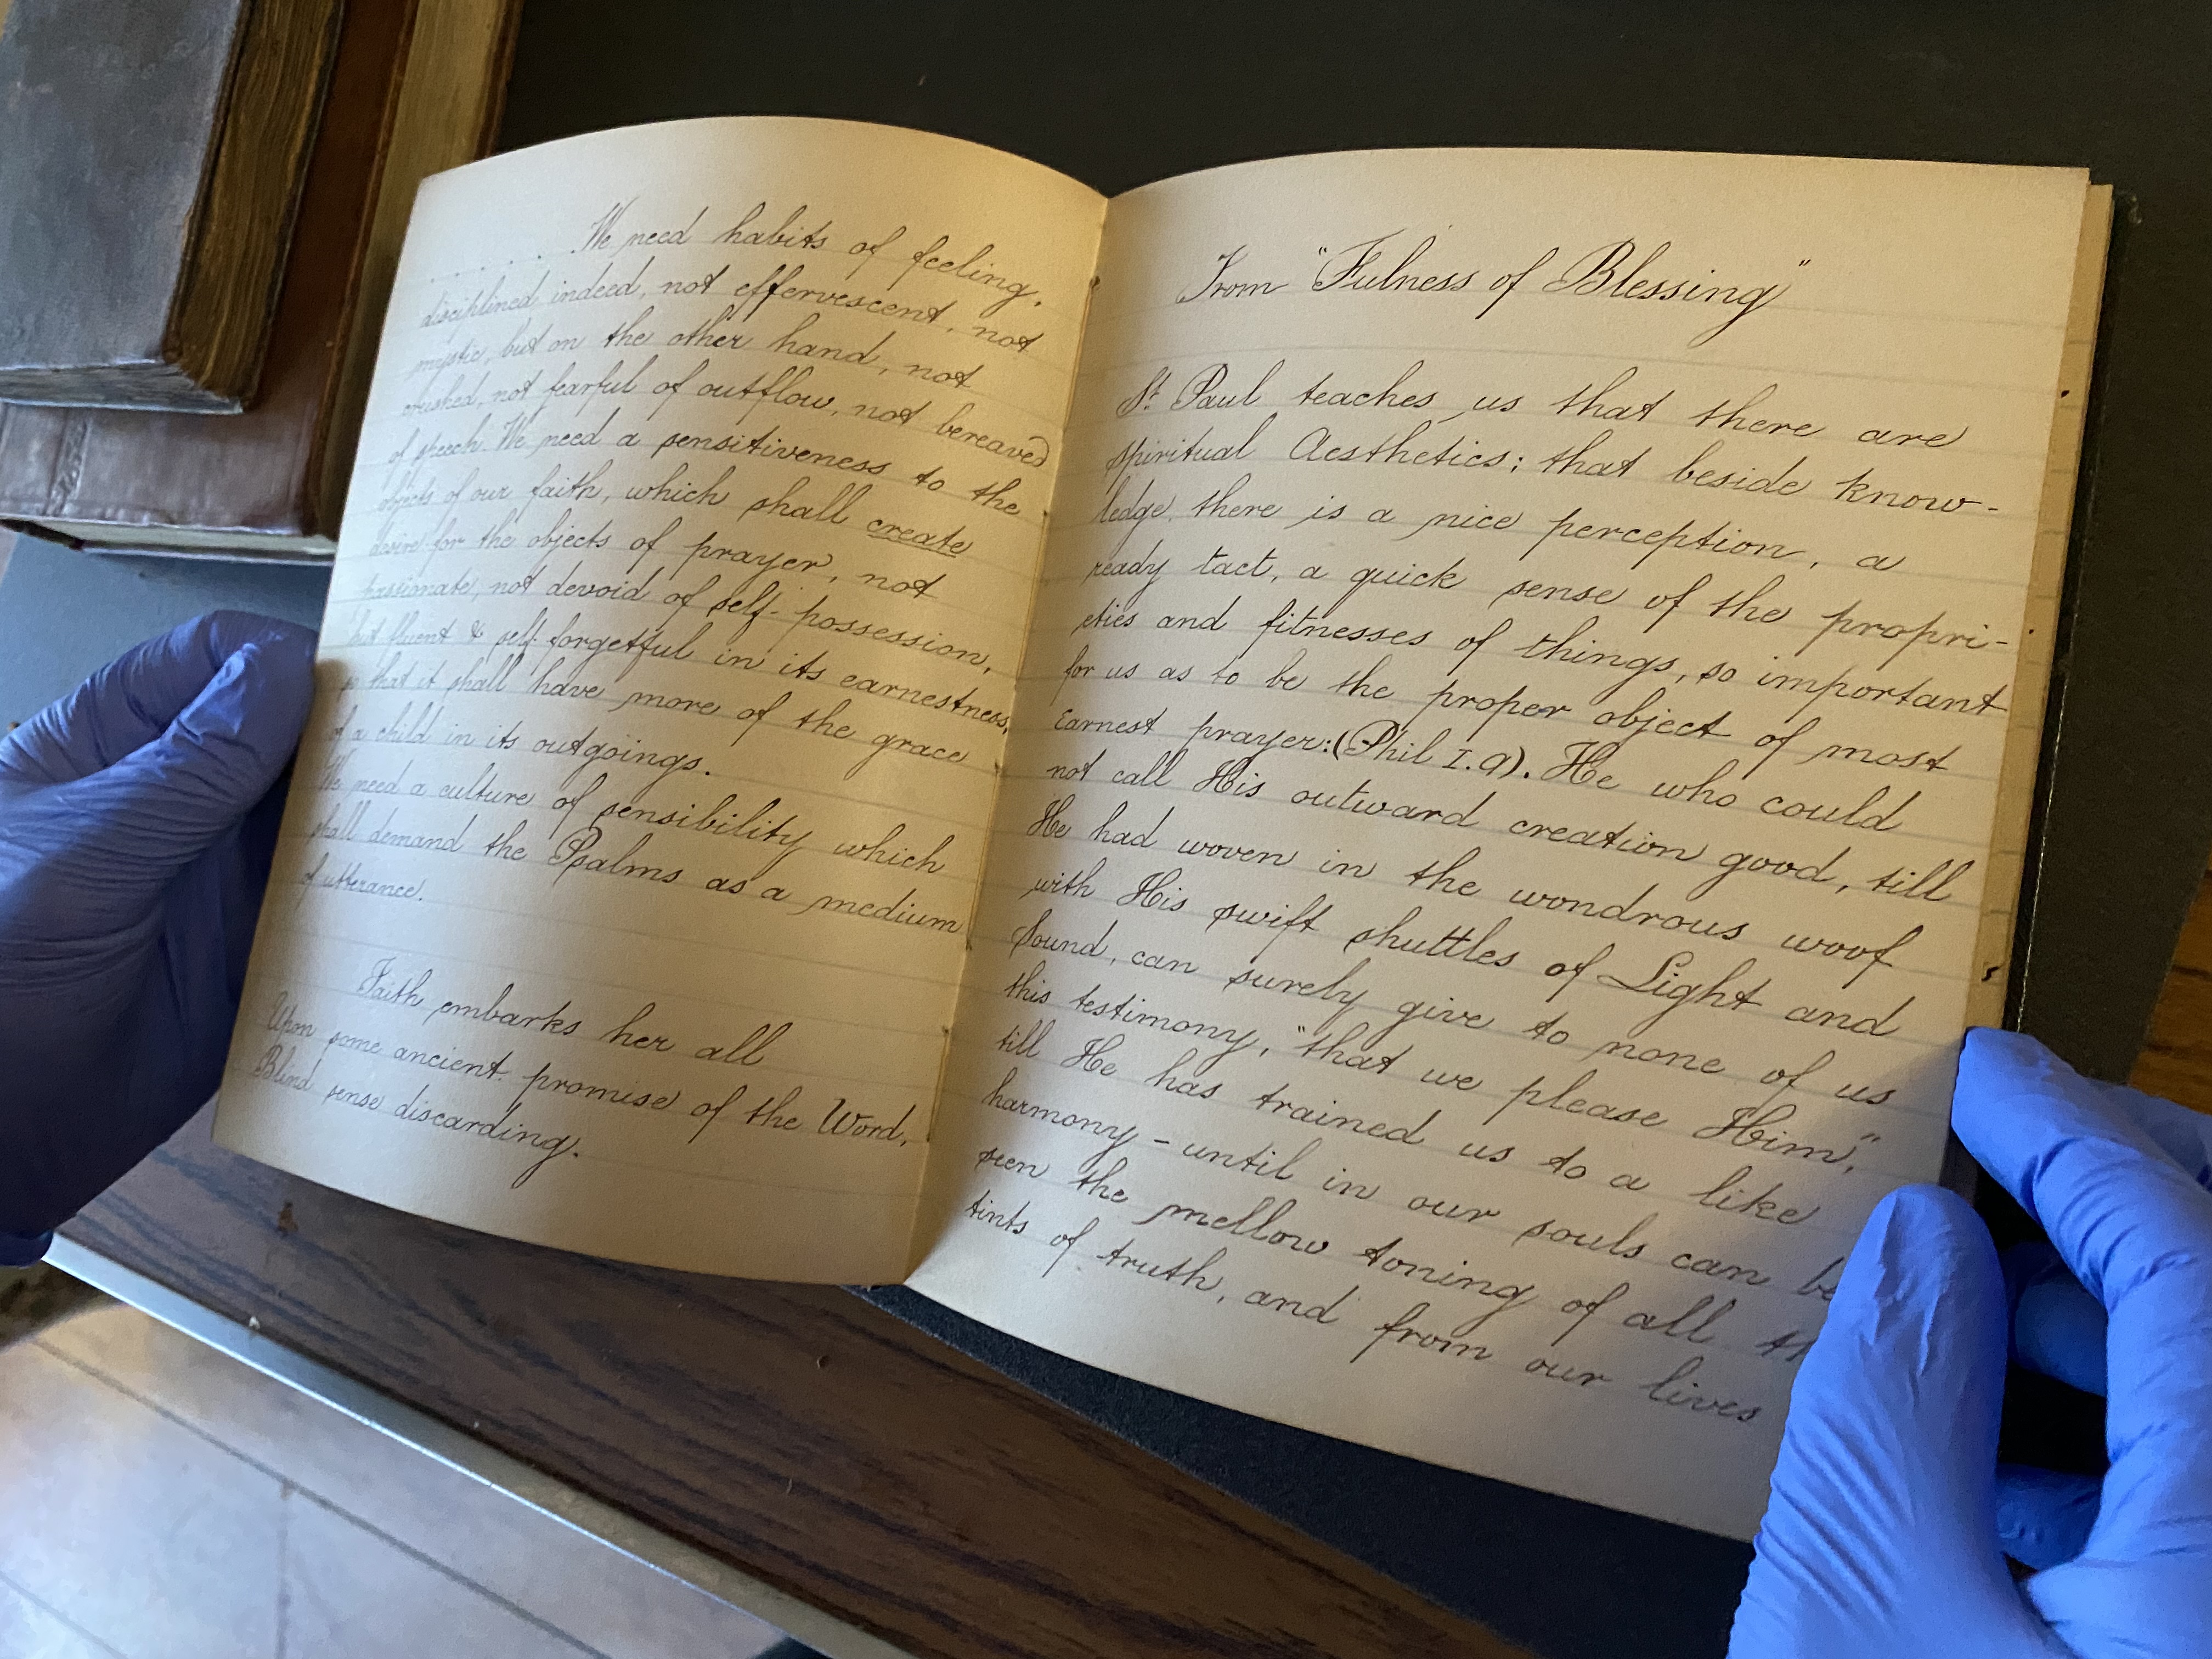 . . . . . . . We need habits of feeling,
disciplined indeed, not effervescent, not
mystic, but on the other hand, not
crushed, not fearful of outflow, not bereaved
of speech. We need a sensitiveness to the
objects of our faith, which shall create
desire for the objects of prayer, not
passionate, not devoid of self-possession,
but fluent & self-forgetful in its earnestness,
so that it shall have more of the grace
of a child in its outgoings.
We need a culture of sensibility which
shall demand the Psalms as a medium
of utterance.
Faith embarks her all
Upon some ancient promise of the Word,
Blind sense discarding.
From "Fulness of Blessing"
St. Paul teaches us that there are
spiritual Aesthetics; that beside know-
ledge, there is a nice perception, a
ready tact, a quick sense of the propri-
eties and fitnesses of things, so important
for us as to be the proper object of most
earnest prayer: (Phil I. 9). He who could
not call His outward creation good, till
He had woven in the wondrous woof
with His swift shuttles of Light and
Sound, can surely give to none of us
this testimony, "that we please Him",
till He has trained us to a like
harmony - until in our souls can be
seen the mellow toning of all th
tints of truth, and from our lives